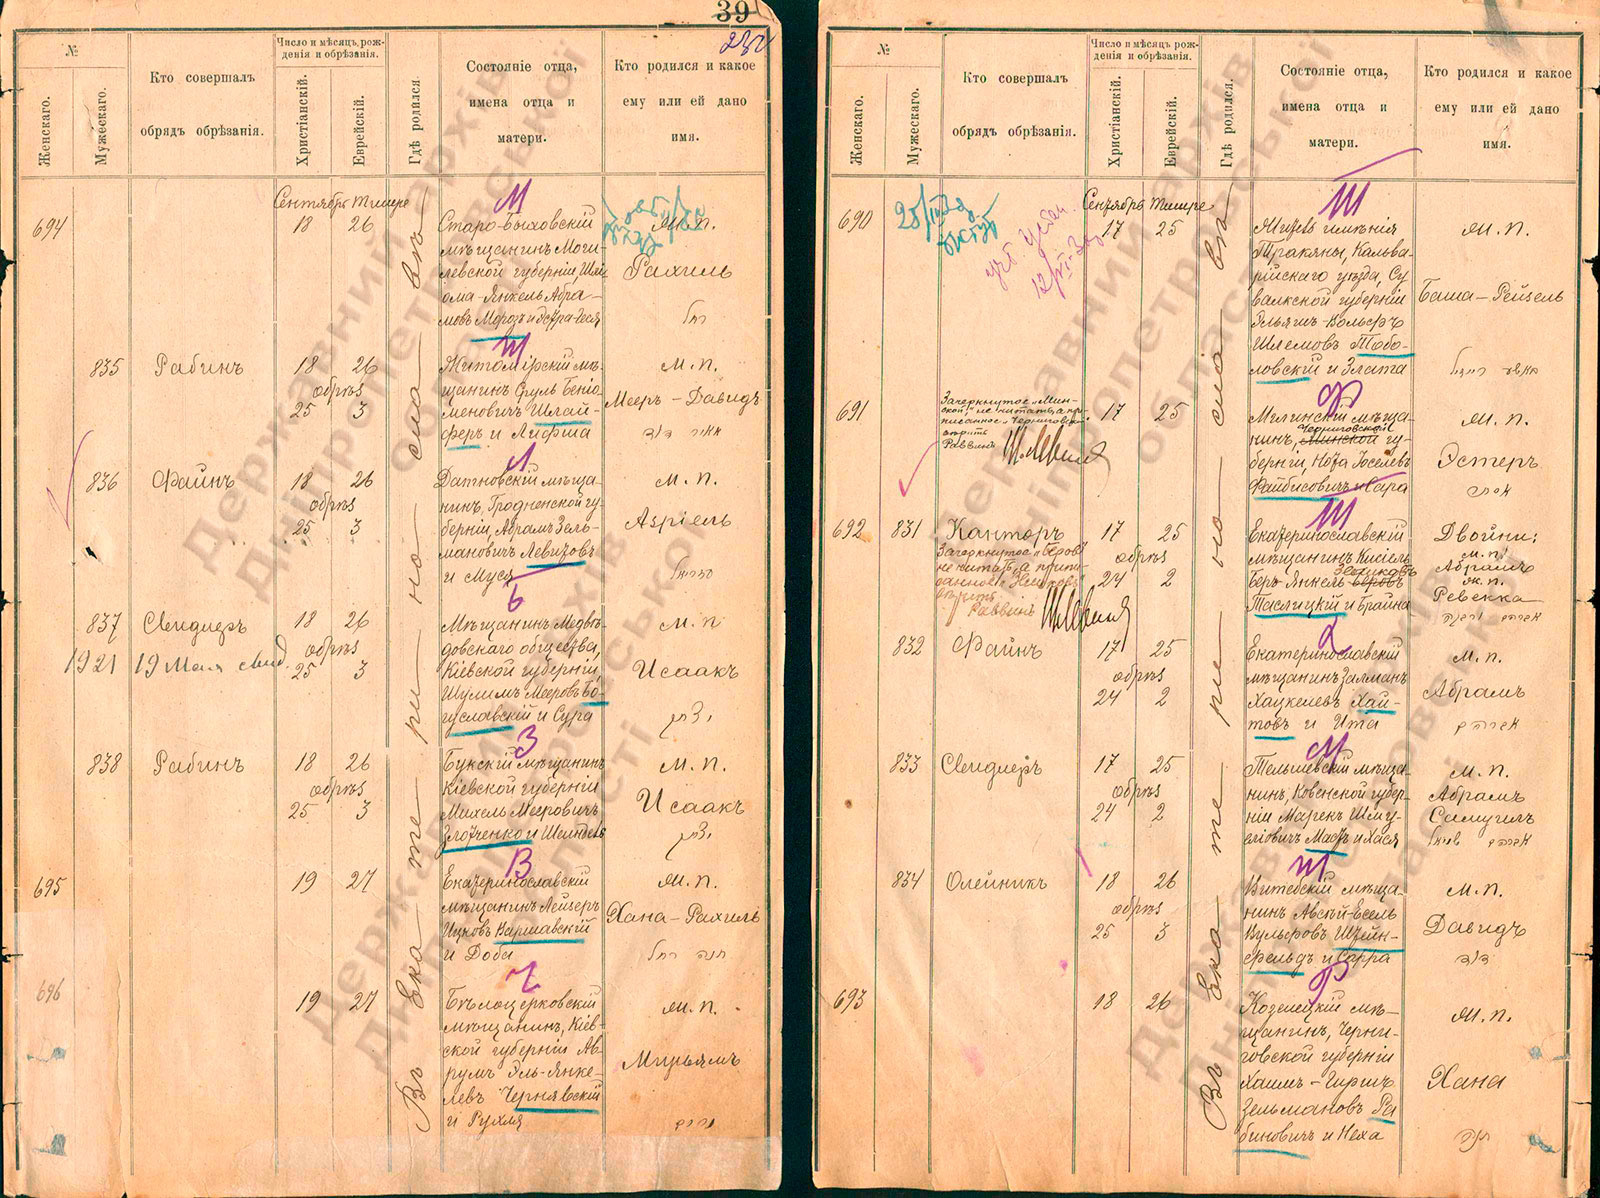 39
234
№
Женскаго.
Мужескаго.
Кто совершалъ
обрядъ обрѣзанія.
Число и мѣсяцъ рож-
денія и обрѣзанія.
Христіанскій.
Еврейскій.
Гдѣ родился.
Состояніе отца,
имена отца и
матери.
Кто родился и какое
ему или ей дано
имя.
Въ Ека-те-ри-но-сла-въ
Сентябрь Тишре
М
694
18 26
Старо-Быховскій
мѣщанинъ Моги-
левской губерніи
Янкель Абра-
мовъ Морозъ и
Ж. п.
Рахиль
רחל
Ш
835 Рабинъ
18 26
обрѣз
25 3
Житомірскій мѣ-
щанинъ Сруль Беніо-
меновичъ Шлай-
феръ и Лифша
М. п.
Мееръ-Давидъ
מאיר דוד
Л
836 Файнъ
18 26
обрѣз
25 3
Датновскій мѣща-
нинъ, Гродненской гу-
берніи, Абрамъ Зель-
мановичъ Левизовъ
и Муся
М. п.
Азріель
עזריאל
Б
837 Свидлеръ
1921 19 Мая
18 26
обрѣз
25 3
Мѣщанинъ Медвѣ-
довскаго общества,
Кіевской губерніи,
Шулимъ Мееровъ Бо-
гуславскій и Сура
М. п
Исаакъ
יצחק
З
838 Рабинъ
18 26
обрѣз
25 3
Букскій мѣщанинъ
Кіевской губерніи
Михель Мееровичъ
Злотченко и Шейндель
М. п.
Исаакъ
יצחק
В
695
19 27
Екатеринославскій
мѣщанинъ Лейзеръ
Ицковъ Варшавскій
и Доба
Ж. п.
Хана-Рахиль
חנה רחל
Ч
696
19 27
Бѣлоцерковскій
мѣщанинъ, Кіев-
ской губерніи Ав-
румъ Эль-Янке-
левъ Чернявскій
и Рухля
Ж. п.
Мирьямъ
מרים
№
Женскаго.
Мужескаго.
Кто совершалъ
обрядъ обрѣзанія.
Число и мѣсяцъ рож-
денія и обрѣзанія.
Христіанскій.
Еврейскій.
Гдѣ родился.
Состояніе отца,
имена отца и
матери.
Кто родился и какое
ему или ей дано
имя.
Въ Ека-те-ри-но-сла-въ
Сентябрь Тишре
Т
690
17 25
имѣнія
Тракяны, Кальва-
рійскаго уѣзда, Су-
валкской губерніи
Эльяшъ-Вольфъ
Шлемовъ Тобо-
ловскій и Злата
Ж. п.
Баша-Рейзель
באשע רייזל
Ф
691
Зачеркнутое „Мин-
ской“ не читать, а при-
писанное „Черниговской“
вѣрить
Раввинъ
17 25
Мглинскій мѣща-
Черниговской
нинъ, Минской гу-
берніи, Нота Іоселевъ
Файбисовичъ и Сара
Ж. п.
Эстеръ
אסתר
692 831 Канторъ
Зачеркнутое „беровъ“
не читать, а припи-
данное
вѣрить
Раввинъ
17 25
обрѣз
24 2
Екатеринославскій
мѣщанинъ Кисіель
беръ Янкель беровъ
Таслицкій и Брайна
Двойни:
м. п.
Абрамъ
ж. п.
Ревекка
אברהם ורבקה
832 Файнъ
17 25
обрѣз
24 2
Екатеринославскій
мѣщанинъ Залманъ
Хацкелевъ Хай-
товъ и Ита
М. п.
Абрамъ
אברהם
М
833 Свидлеръ
17 25
обрѣз
24 2
Тельшевскій мѣща-
нинъ, Ковенской губер-
ніи Марекъ Шму-
еліовичъ Масъ и Хася
М. п.
Абрамъ
Самуилъ
אברהם שמואל
Ш
834 Олейникъ
18 26
обрѣз
25 3
Витебскій мѣща-
нинъ Авсѣй-Есель
Вульфовъ Штейн-
фельдъ и Сарра
М. п.
Давидъ
דוד
Р
693
18 26
Козелецкій мѣ-
щанинъ, Черни-
говской губерніи
Хаимъ-Гиршъ
Зельмановъ Ра-
биновичъ и Неха
Ж. п.
Хана
חנה
Державний архів
Дніпропетровської
області